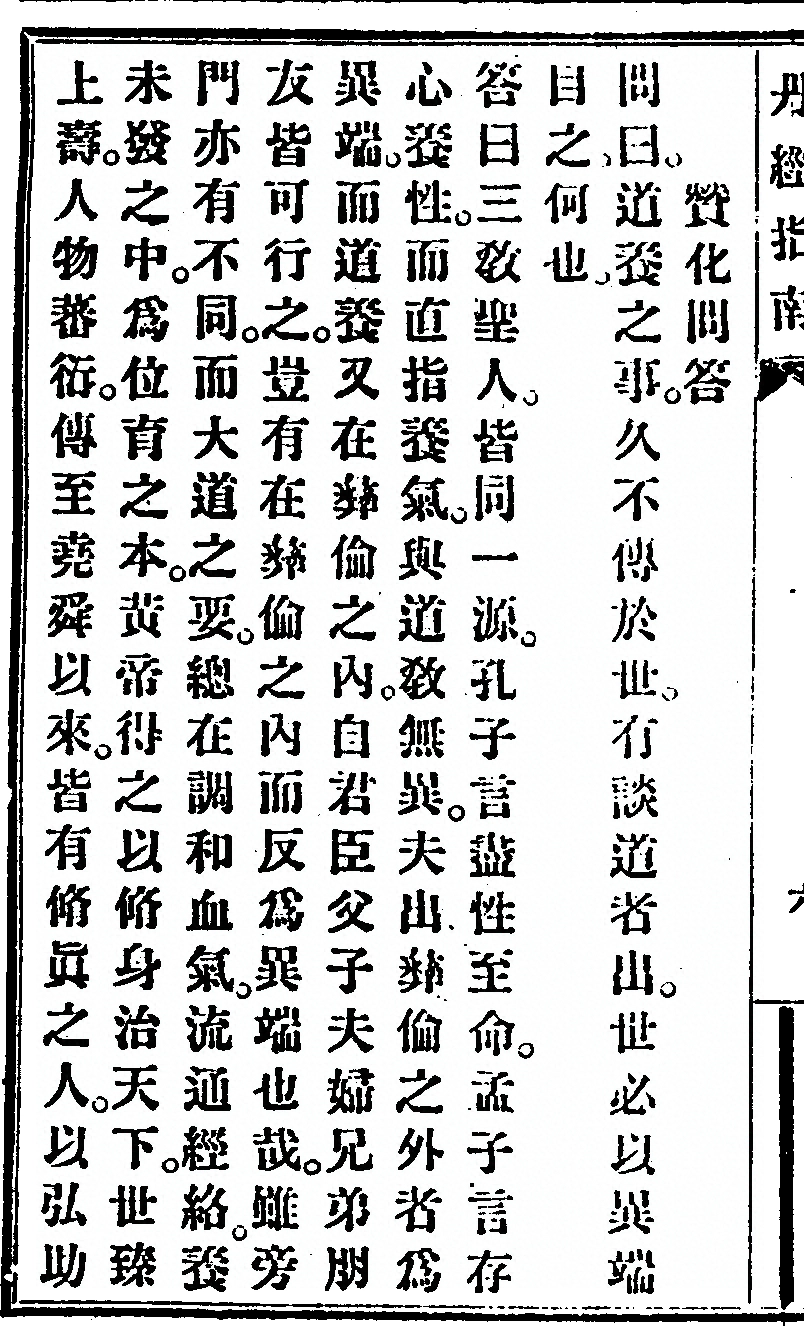 丹經指南
六
贊化問答
問曰。道養之事。久不傳於世。有談道者出。世必以異端
目之、何也。
答曰三敎聖人。皆同一源。孔子言盡性至命。孟子言存
心養性。而直指養氣。與道敎無異。夫出彝倫之外者爲
異端。而道養又在彝倫之內。自君臣父子夫婦兄弟朋
友皆可行之。豈有在彝倫之內而反爲異端也哉。雖旁
門亦有不同。而大道之要。總在調和血氣。流通經絡。養
未發之中。爲位育之本。黃帝得之以脩身治天下。世臻
上壽。人物蕃衍。傳至堯舜以來。皆有脩眞之人。以弘助